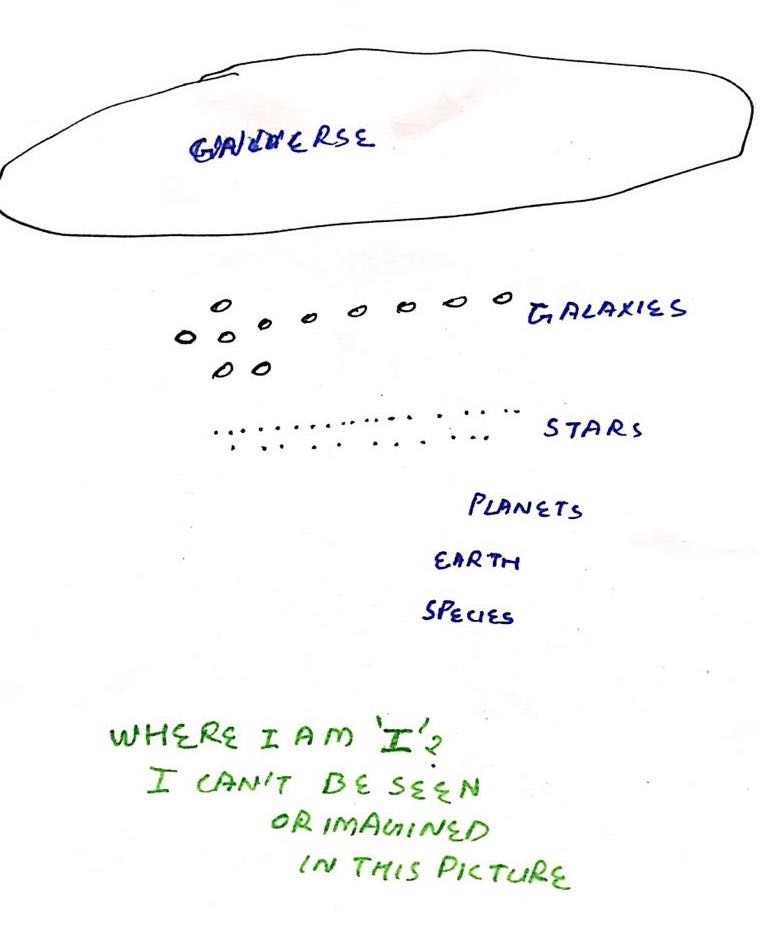 UNIVERSE
GALAXIES
STARS
PLANETS
EARTH
SPECIES
WHERE I AM 'I'?
I CAN'T BE SEEN
OR IMAGINED
IN THIS PICTURE